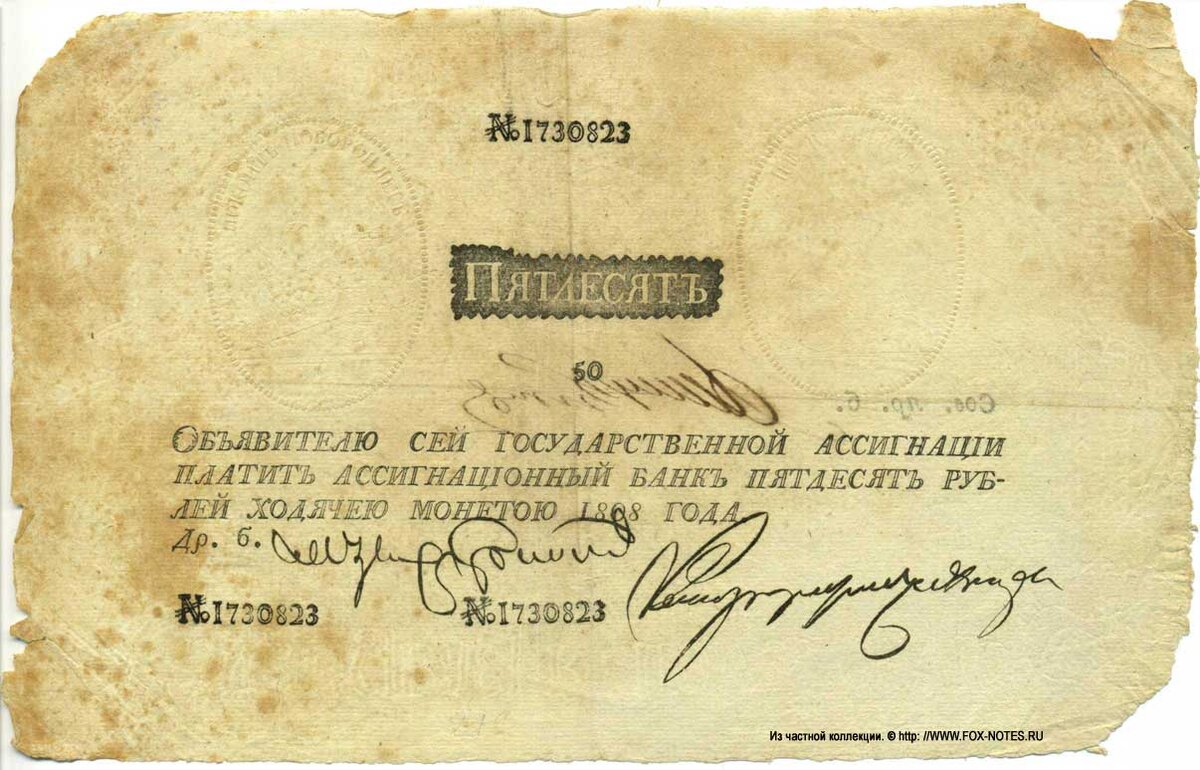 № 1730823
ПОКОИТЪ И ОБОРОНЯЕТЪ
ПЯТДЕСЯТЪ
50
Сов. пр. б.
ОБЪЯВИТЕЛЮ СЕЙ ГОСУДАРСТВЕННОЙ АССИГНАЦIИ
ПЛАТИТЪ АССИГНАЦIОННЫЙ БАНКЪ ПЯТДЕСЯТЪ РУБ-
ЛЕЙ ХОДЯЧЕЮ МОНЕТОЮ 1808 ГОДА
Др. б.
№ 1730823 № 1730823
Из частной коллекции. © http: //WWW.FOX-NOTES.RU